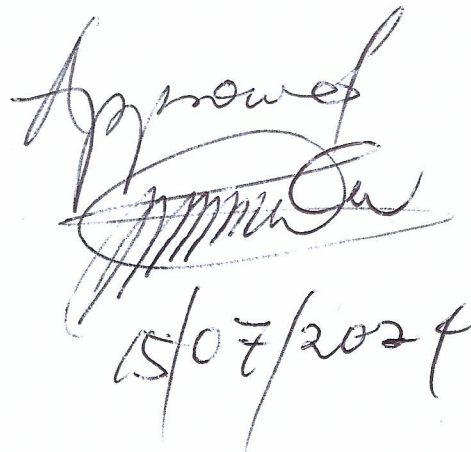 Approved
15/07/2024